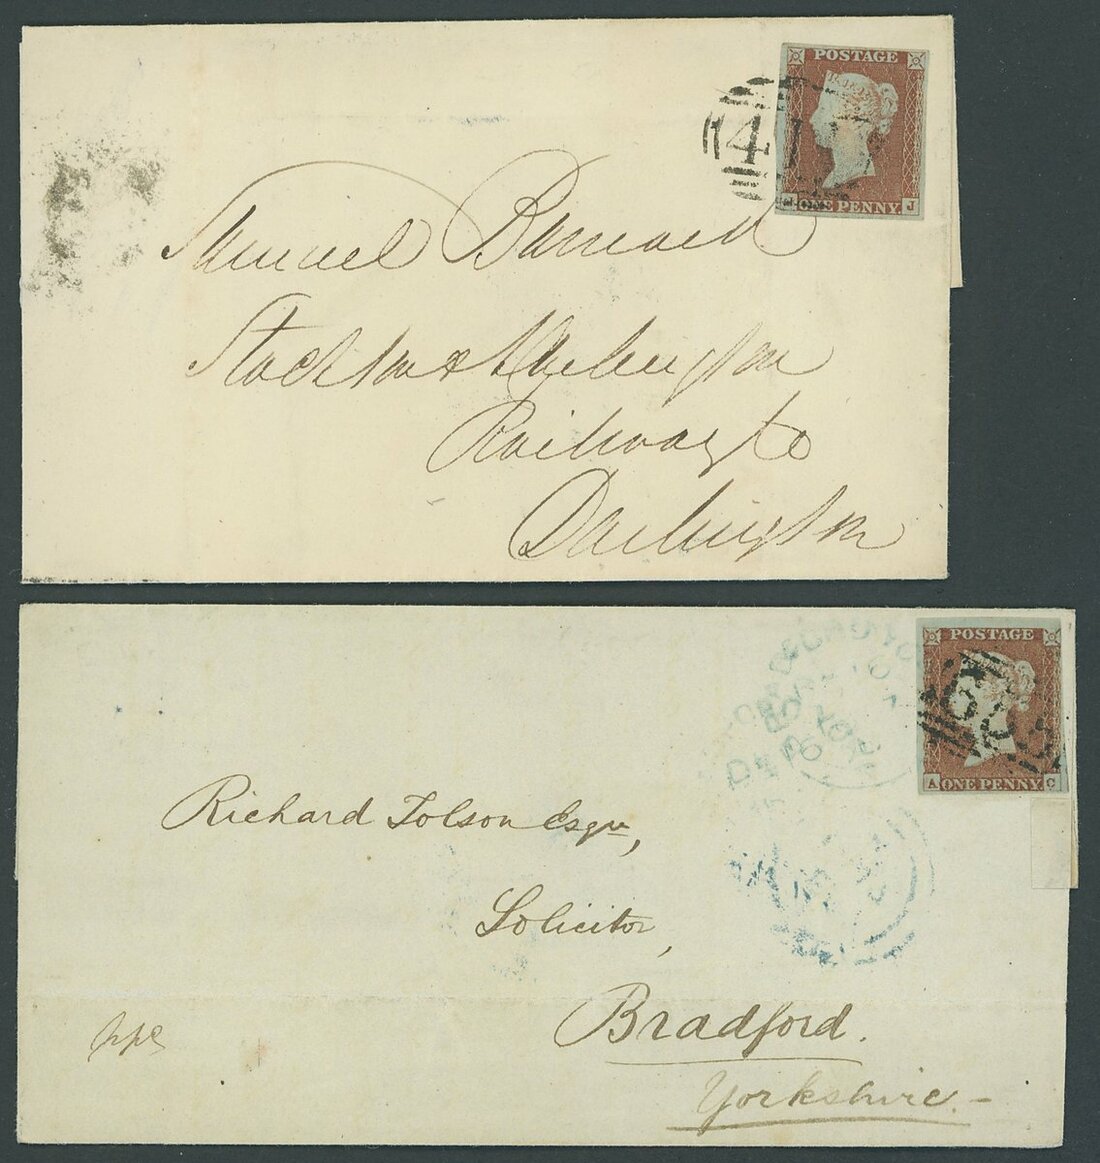 POSTAGE
ONE PENNY.
J
Samuel Barnard
Stockton & Darlington
Railway Co
Darlington
POSTAGE
A ONE PENNY. C
Richard Tolson Esqre,
Solicitor,
Bradford.
Yorkshire.